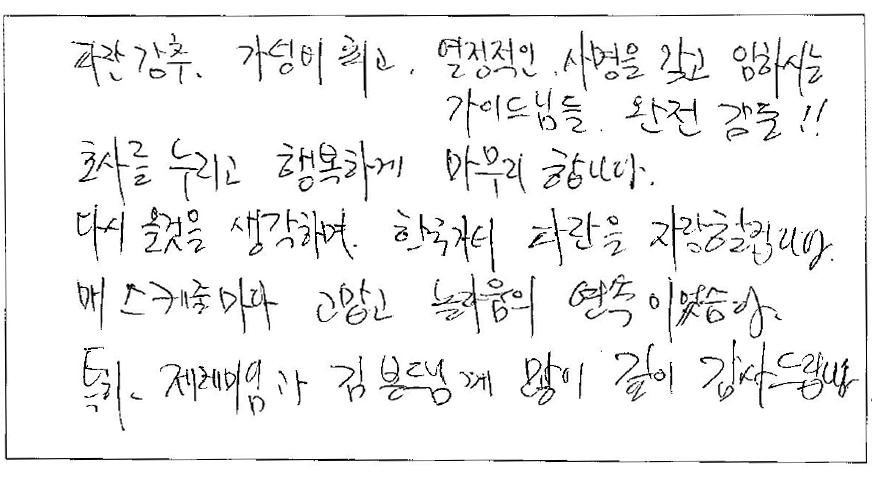 파란 강추. 가성비 최고. 열정적인 사명을 갖고 임하시는
가이드님들. 완전 감동!!
호사를 누리고 행복하게 마무리 합니다.
다시 올것을 생각하며. 한국가서 파란을 자랑할겁니다.
매 스케줄마다 고맙고 놀라움의 연속이었습니다.
특히. 제레미임과 김 님께 많이 깊이 감사드립니다